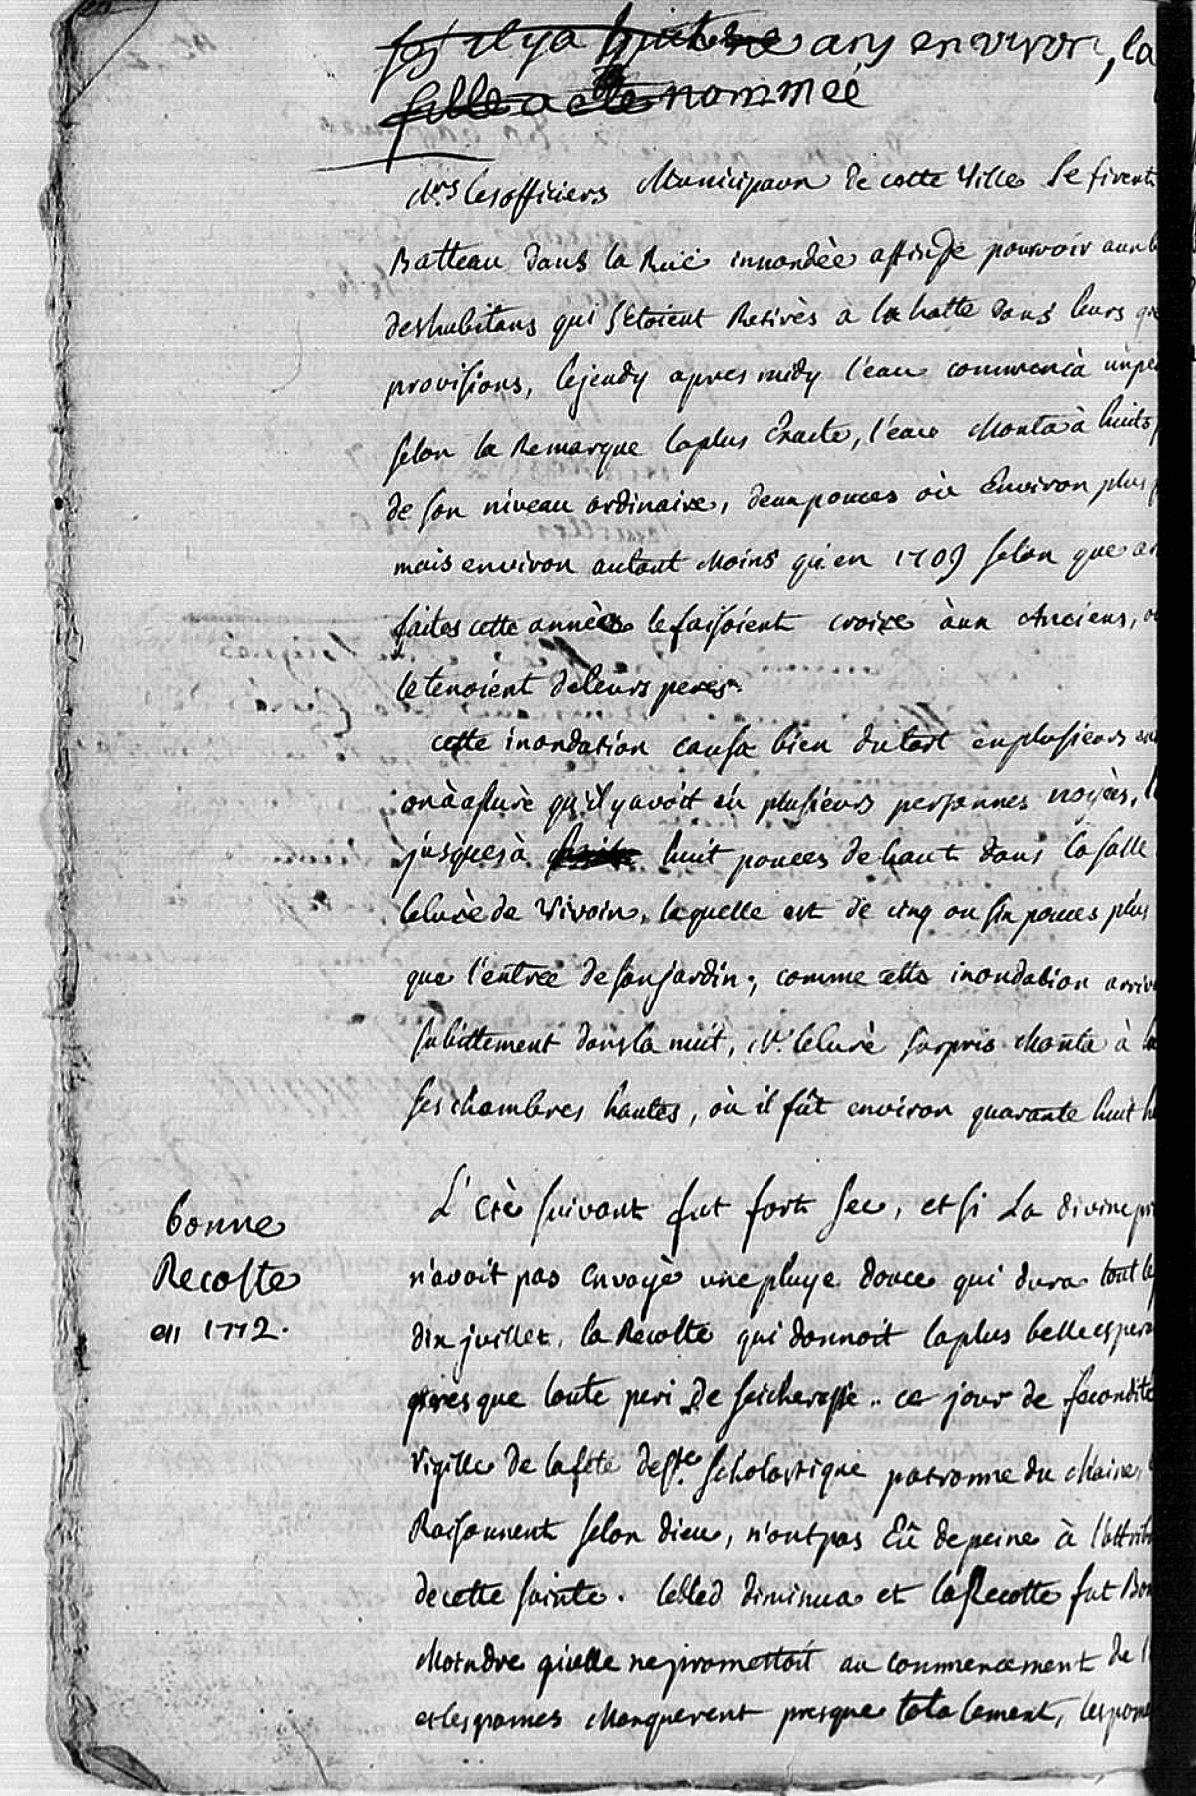 il y a ans environ, la
fille a ete nommeé
Mrs les officiers Municipaux de cette Ville Se firent
Batteau dans la Ruë innondèe affin de pourvoir aux
des habitans qui S'etoient Retirès a la hatte dans leurs
provisions, le jeudy apres midy l'eau commencà un peu
Selon la Remarque la plus Exacte, l'eau Monta à huits
de Son niveau ordinaire, deux pouces où Environ plus
mais environ autant Moins qu'en 1709 Selon que
faites cette année le faisoient croire àux Anciens,
le tenoient de leurs peres.
cette inondation causa bien du tort en plusieurs
on à assurè qu'il y avoit eû plusieurs personnes noyèes,
jusques à huit pouces de haut dans la Salle
le Curè de Vivoin, laquelle est de cinq ou Six pouces plus
que l'entrée de Son jardin; comme cette inondation arriva
Subittement dans la nuit, Mr. le Curè Surpris Monta à
Ses chambres hautes, où il fût environ quarante huit
bonne
Recolte
en 1772.
L'Etè Suivant fut fort Sec, et Si La divine
n'avoit pas Envoyè une pluye douce qui dura tout le
dix juillet, la Recolte qui donnoit la plus belle esper
presque toute peri de Seicheresse.. ce jour de fecondité
Vigille de la fête de Ste. Scholastique patronne du Maine,
Raisonnent Selon dieu, n'ont pas Eû de peine à l'attrib
de cette Sainte. le bled diminua et la Recolte fut Bon
Moindre qu'elle ne promettoit au commencement de
et les Manquerent presque totalement, les pom